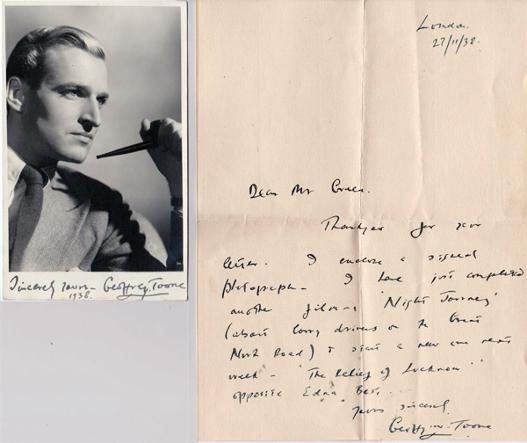 Sincerely yours - Geoffrey Toone
1938.
London.
27/11/38.
Dear Mr Green.
Thankyou for your
letter. I enclose a signed
photograph - I have just completed
another film - 'Night Journey'
(about lorry drivers on the Great
North Road) & start a new one next
week - "The Relief of Lucknow"
opposite Edna Best.
Yours sincerely
Geoffrey Toone